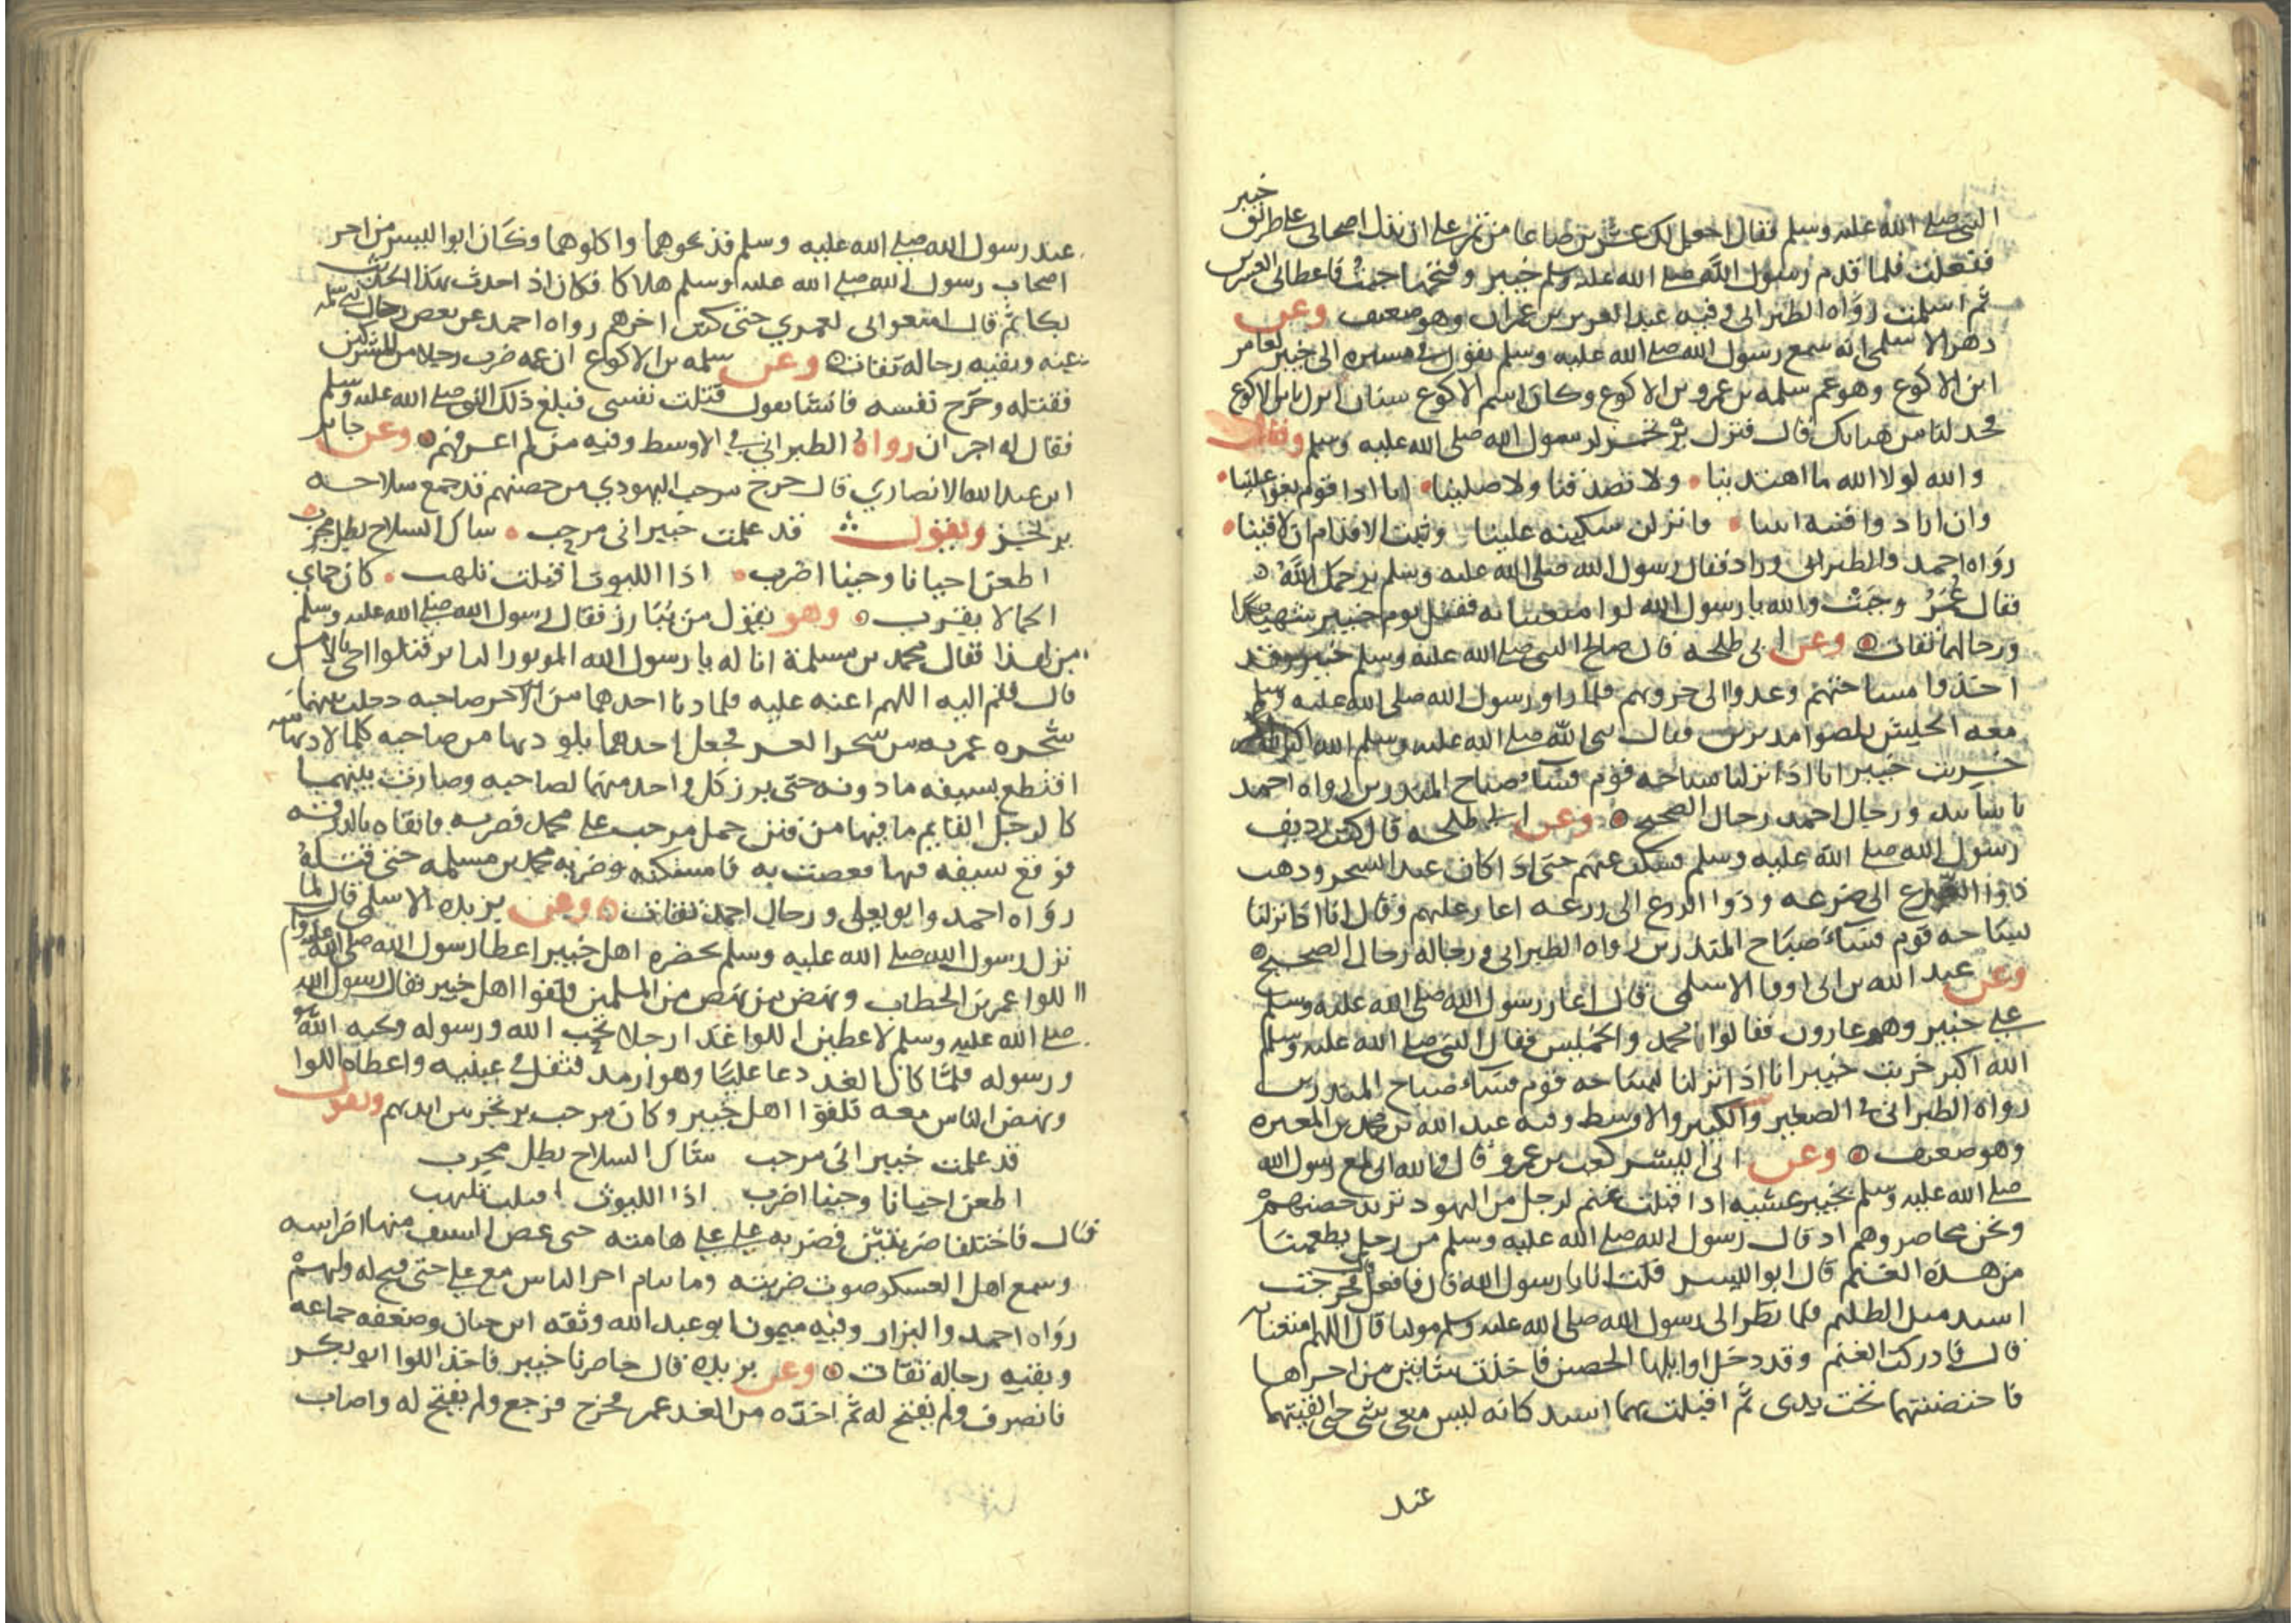 النبي صلى الله عليه وسلم فقال اجعل لك عشرين صاعا من تمر على ان تدل اصحابي على طريق خيبر
ففعلت فلما قدم رسول الله صلى الله عليه وسلم خيبر وفتحها جيت فاعطاني العشرين
ثم اسلمت رواه الطبراني وفيه عبد العزيز بن عمران وهو ضعيف وعن
دهر الاسلمي انه سمع رسول الله صلى الله عليه وسلم يقول في مسيره الى خيبر لعامر
ابن الاكوع وهو عم سلمه بن عمرو بن الاكوع وكان اسم الاكوع سنان انزل يا بن الاكوع
فحد لنا من هناتك قال فنزل يرتجز لرسول الله صلى الله عليه وسلم وقال
والله لولا الله ما اهتدينا ولا تصدقنا ولا صلينا انا اذا قوم بغوا علينا
وان ارادوا فتنه ابينا فانزلن سكينه علينا وثبت الاقدام ان لاقينا
رواه احمد والطبراني وزاد فقال رسول الله صلى الله عليه وسلم يرحمك الله
فقال عمر وجبت والله يا رسول الله لو امتعتنا به فقتل يوم خيبر شهيدا
ورجالهما ثقات وعن ابي طلحه قال صالح النبي صلى الله عليه وسلم خيبر وقد
اخذوا مساحيهم وغدوا الى حروثهم فلما راو رسول الله صلى الله عليه وسلم
معه الجيش نكصوا مدبرين فقال نبي الله صلى الله عليه وسلم الله اكبر
خربت خيبر انا اذا نزلنا بساحه قوم فساء صباح المنذرين رواه احمد
باسانيد ورجال احمد رجال الصحيح وعن ابي طلحه قال كنت رديف
رسول الله صلى الله عليه وسلم فسكت عنهم حتى اذا كان عند السحر وذهب
ذوا الضرع الى ضرعه وذوا الزرع الى زرعه اغار عليهم وقال انا اذا نزلنا
بساحه قوم فساء صباح المنذرين رواه الطبراني ورجاله رجال الصحيح
وعن عبد الله بن ابي اوفا الاسلمي قال اغار رسول الله صلى الله عليه وسلم
على خيبر وهم غارون فقالوا محمد والخميس فقال النبي صلى الله عليه وسلم
الله اكبر خربت خيبر انا اذا نزلنا بساحه قوم فساء صباح المنذرين
رواه الطبراني في الصغير والكبير والاوسط وفيه عبد الله بن محمد بن المغيره
وهو ضعيف وعن ابي اليسر كعب بن عمرو قال والله اني لمع رسول الله
صلى الله عليه وسلم بخيبر عشيه اذا قبلت غنم لرجل من اليهود تريد حصنهم
ونحن محاصروهم اذ قال رسول الله صلى الله عليه وسلم من رجل يطعمنا
من هذه الغنم قال ابو اليسر قلت انا يا رسول الله قال فافعل قال فخرجت
اشتد مثل الظليم فلما نظر الى رسول الله صلى الله عليه وسلم موليا قال اللهم امتعنا به
قال فادركت الغنم وقد دخل اوايلها الحصن فاخذت شاتين من اخراها
فاحتضنتهما تحت يدي ثم اقبلت بهما اشتد كانه ليس معي شي حتى القيتهما
عند
عند رسول الله صلى الله عليه وسلم فذبحوهما واكلوهما وكان ابو اليسر من اخر
اصحاب رسول الله صلى الله عليه وسلم هلاكا فكان اذا حدث هذا الحديث
بكا ثم قال امتعوا بي لعمري حتى كنت اخرهم رواه احمد عن بعض رجال بني سلمه
عنه وبقيه رجاله ثقات وعن سلمه بن الاكوع ان عمه ضرب رجلا من المشركين
فقتله وجرح نفسه فانشا يقول قتلت نفسي فبلغ ذلك النبي صلى الله عليه وسلم
فقال له اجران رواه الطبراني في الاوسط وفيه من لم اعرفهم وعن جابر
ابن عبد الله الانصاري قال خرج مرحب اليهودي من حصنهم قد جمع سلاحه
يرتجز ويقول قد علمت خيبر اني مرحب شاك السلاح بطل مجرب
اطعن احيانا وحينا اضرب اذا الليوث اقبلت تلهب كان حماي
الحمالا يقرب وهو يقول من يبارز فقال رسول الله صلى الله عليه وسلم
من لهذا فقال محمد بن مسلمة انا له يا رسول الله الموتور الثاير قتلوا اخي بالامس
قال فقم اليه اللهم اعنه عليه فلما دنا احدهما من الاخر صاحبه دخلت بينهما
شجره عمريه من شجر العشر فجعل احدهما يلوذ بها من صاحبه كلما لاذ بها منه
اقتطع بسيفه ما دونه حتى برز كل واحد منهما لصاحبه وصارت بينهما
كالرجل القايم ما فيها من فنن حمل مرحب على محمد فضربه فاتقاه بالدرقه
فوقع سيفه فيها فعضت به فامسكته وضربه محمد بن مسلمه حتى قتله
رواه احمد وابو يعلى ورجال احمد ثقات وعن بريده الاسلمي قال لما
نزل رسول الله صلى الله عليه وسلم بحضره اهل خيبر اعطا رسول الله صلى الله عليه وسلم
اللوا عمر بن الخطاب ونهض من نهض من المسلمين فلقوا اهل خيبر فقال رسول الله
صلى الله عليه وسلم لاعطين اللوا غدا رجلا يحب الله ورسوله ويحبه الله
ورسوله فلما كان الغد دعا عليا وهو ارمد فتفل في عينيه واعطاه اللوا
ونهض الناس معه فلقوا اهل خيبر وكان مرحب يرتجز بين ايديهم ويقول
قد علمت خيبر اني مرحب شاك السلاح بطل مجرب
اطعن احيانا وحينا اضرب اذا الليوث اقبلت تلهب
قال فاختلفا ضربتين فضربه علي على هامته حتى عض السيف منها اضراسه
وسمع اهل العسكر صوت ضربته وما تتام اخر الناس مع علي حتى فتح له ولهم
رواه احمد والبزار وفيه ميمون ابو عبد الله وثقه ابن حبان وضعفه جماعه
وبقيه رجاله ثقات وعن بريده قال حاصرنا خيبر فاخذ اللوا ابو بكر
فانصرف ولم يفتح له ثم اخذه من الغد عمر فخرج فرجع ولم يفتح له واصاب